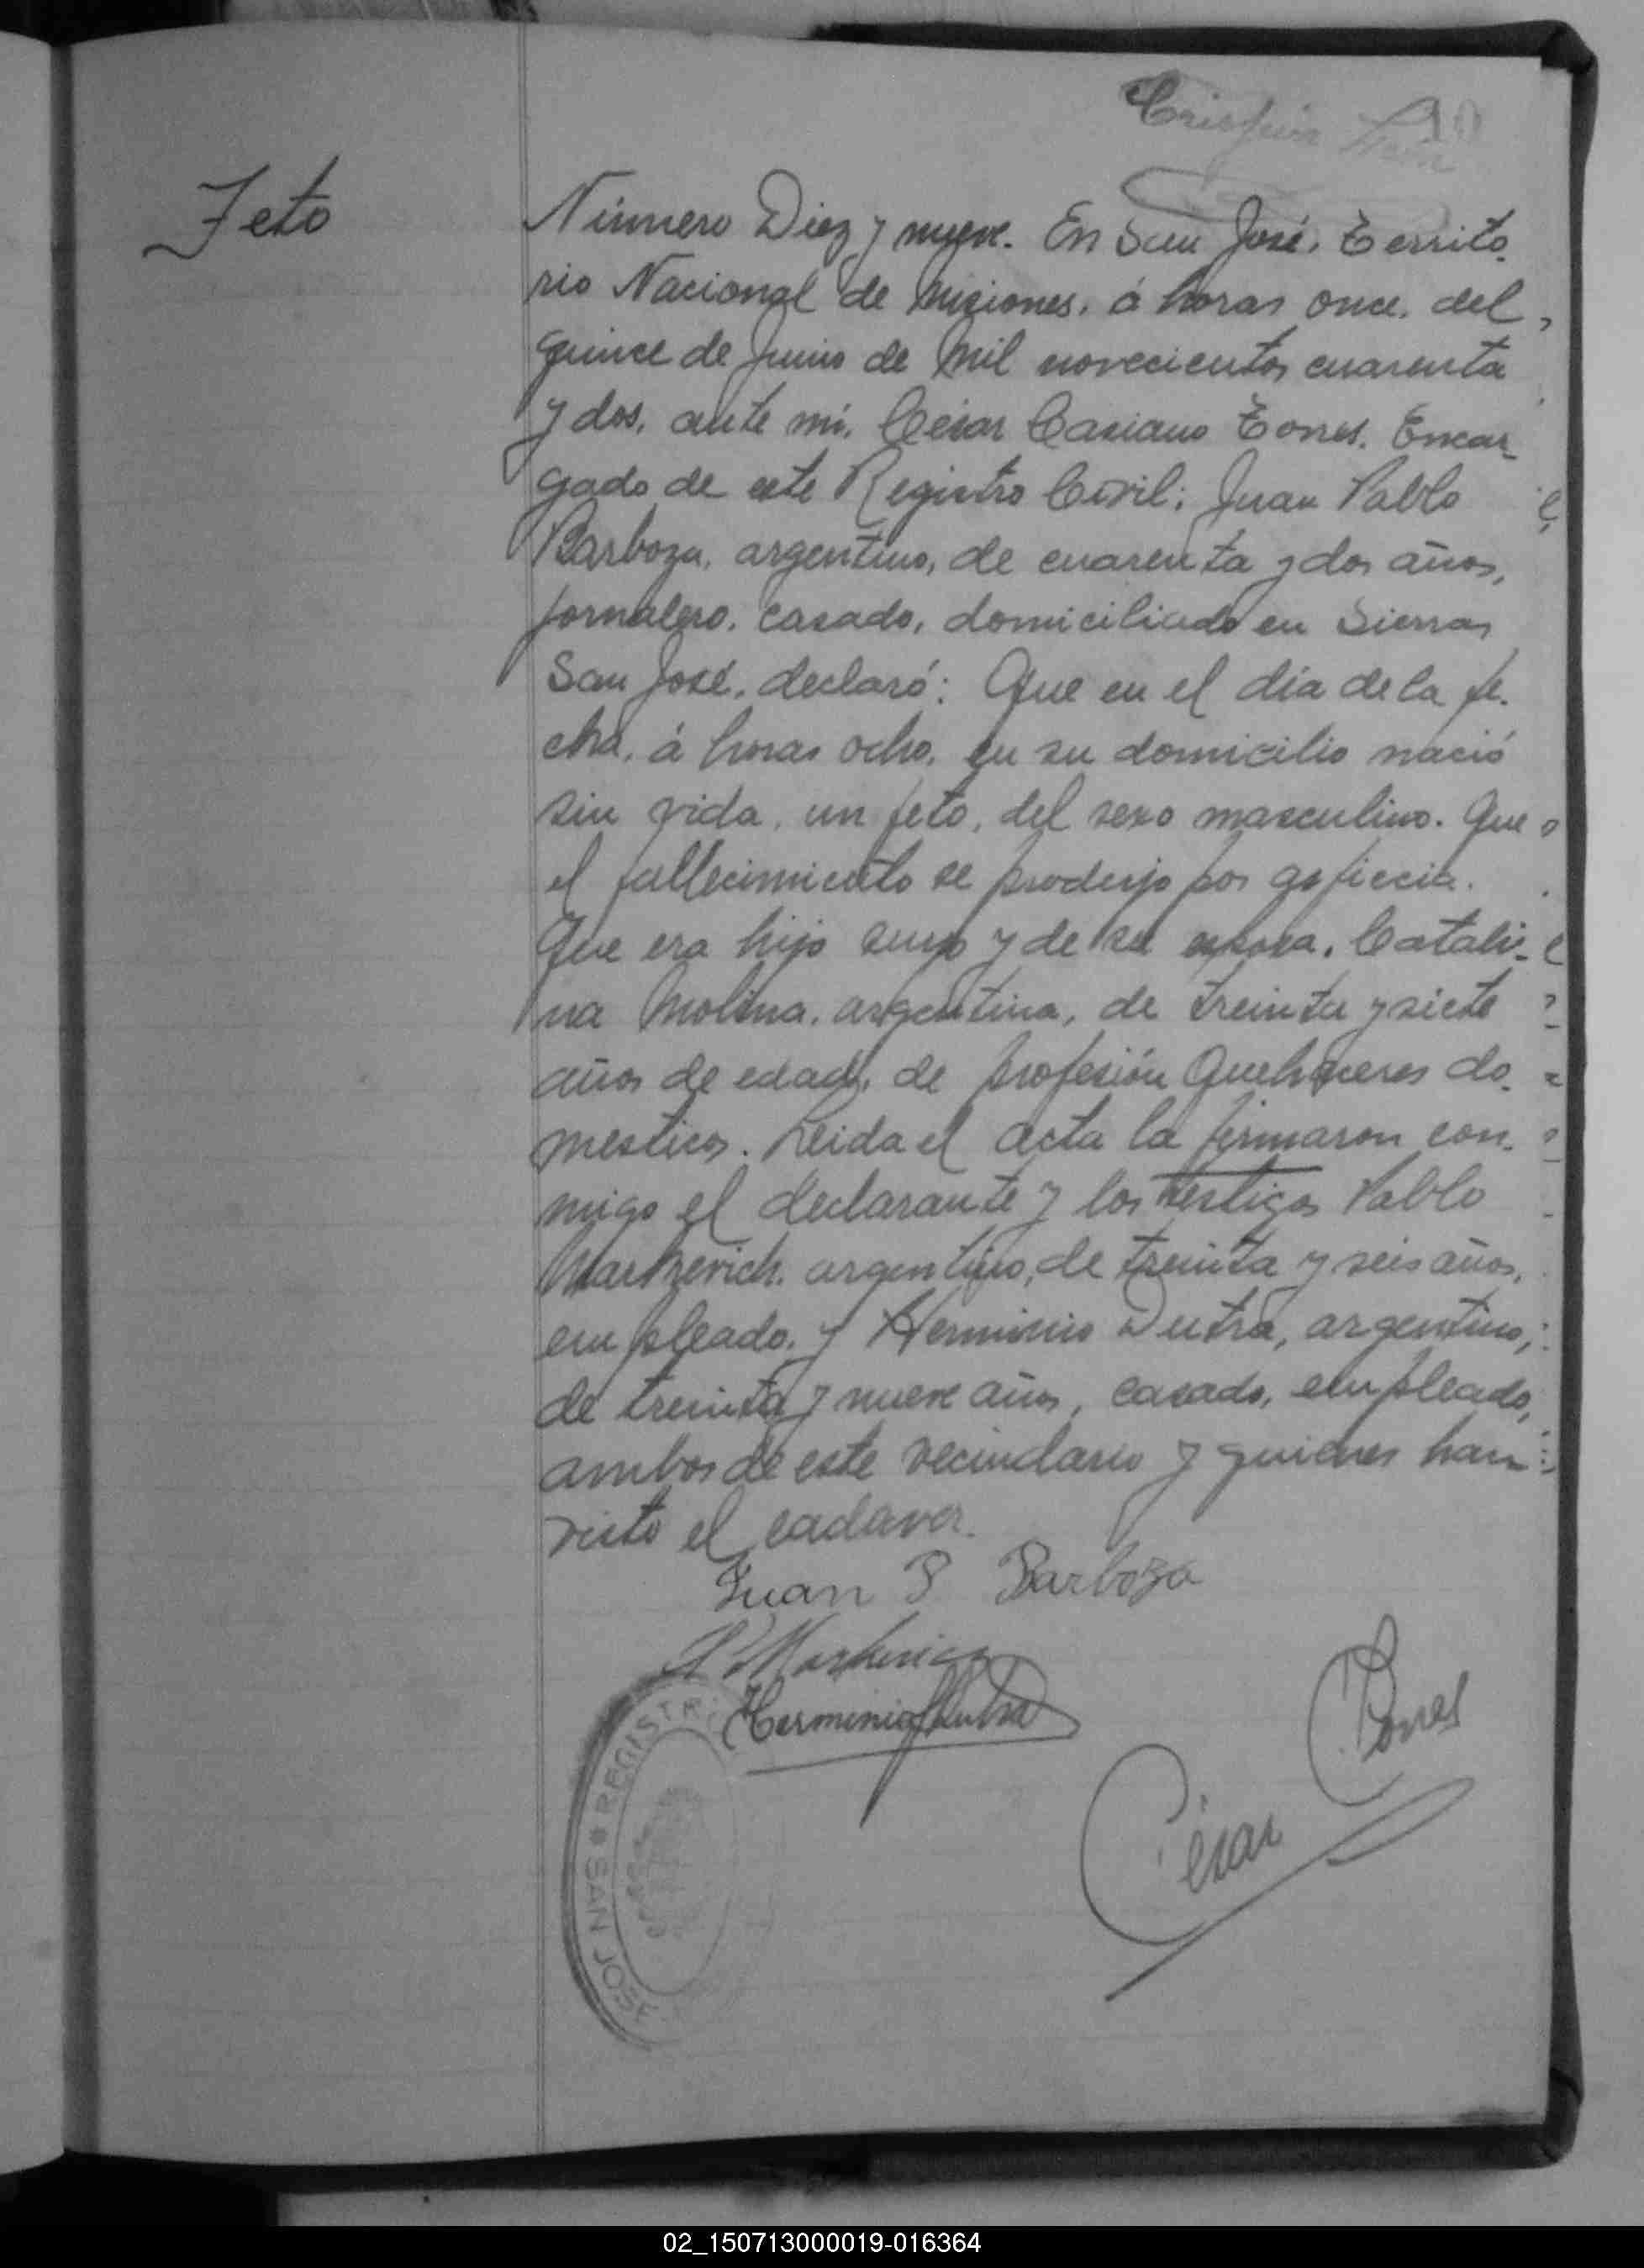 Crispín
Feto
Número Diez y nueve. En San José, Territo-
rio Nacional de Misiones, á horas once, del
quince de Junio de mil novecientos cuarenta
y dos, ante mí, César Casiano Torres, Encar-
gado de este Registro Civil; Juan Pablo
Barboza, argentino, de cuarenta y dos años,
jornalero, casado, domiciliado en Sierras
San José, declaró: Que en el día de la fe-
cha, á horas ocho, en su domicilio nació
sin vida, un feto, del sexo masculino. Que
el fallecimiento se produjo por asficcia.
Que era hijo suyo y de su esposa, Catali-
na Molina, argentina, de treinta y siete
años de edad, de profesión Quehaceres do-
mesticos. Leida el acta la firmaron con-
migo el declarante y los testigos Pablo
Markevich, argentino, de treinta y seis años,
empleado, y Herminio Dutra, argentino,
de treinta y nueve años, casado, empleado,
ambos de este vecindario y quienes han
visto el cadaver.
Juan P Barboza
P Markevich
Herminio Dutra
César Torres
REGISTR
SAN JOSE
02_150713000019-016364